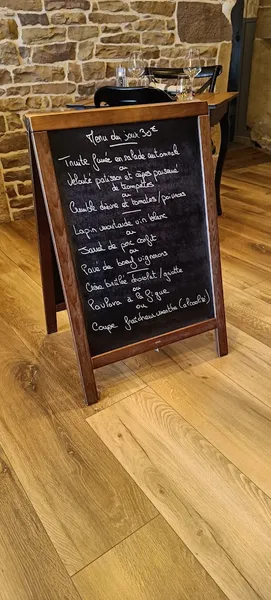 Menu du jour 30€
Truite fumée en salade automnale
ou
Velouté patisson et cèpes panaché
de trompettes
ou
Crumble chèvre et tomates / poivrons
Lapin moutarde vin blanc
ou
Sauté de porc confit
ou
Pavé de boeuf vigneron
Crème brûlée chocolat /
ou
Pavlova à la figue
ou
Coupe fraicheur menthe (alcoolisé)